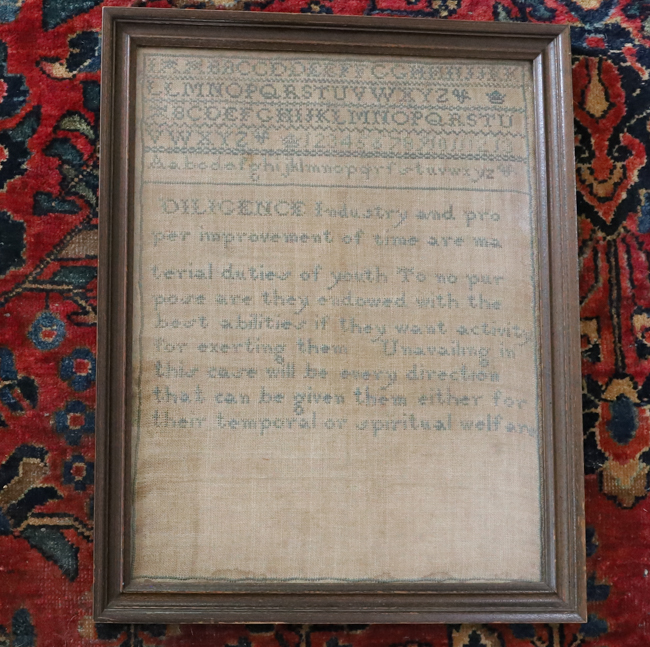 A A B B C C D D E E F F G G H H I I J J K K
L L M N O P Q R S T U V W X Y Z
A B C D E F G H I J K L M N O P Q R S T U
V W X Y Z 1 2 3 4 5 6 7 8 9 10 11 12 13
A a b c d e f g h i j k l m n o p q r f s t u v w x y z
DILIGENCE Industry and pro
per improvement of time are ma
terial duties of youth To no pur
pose are they endowed with the
best abilities if they want activity
for exerting them Unavailing in
this case will be every direction
that can be given them either for
their temporal or spiritual welfare